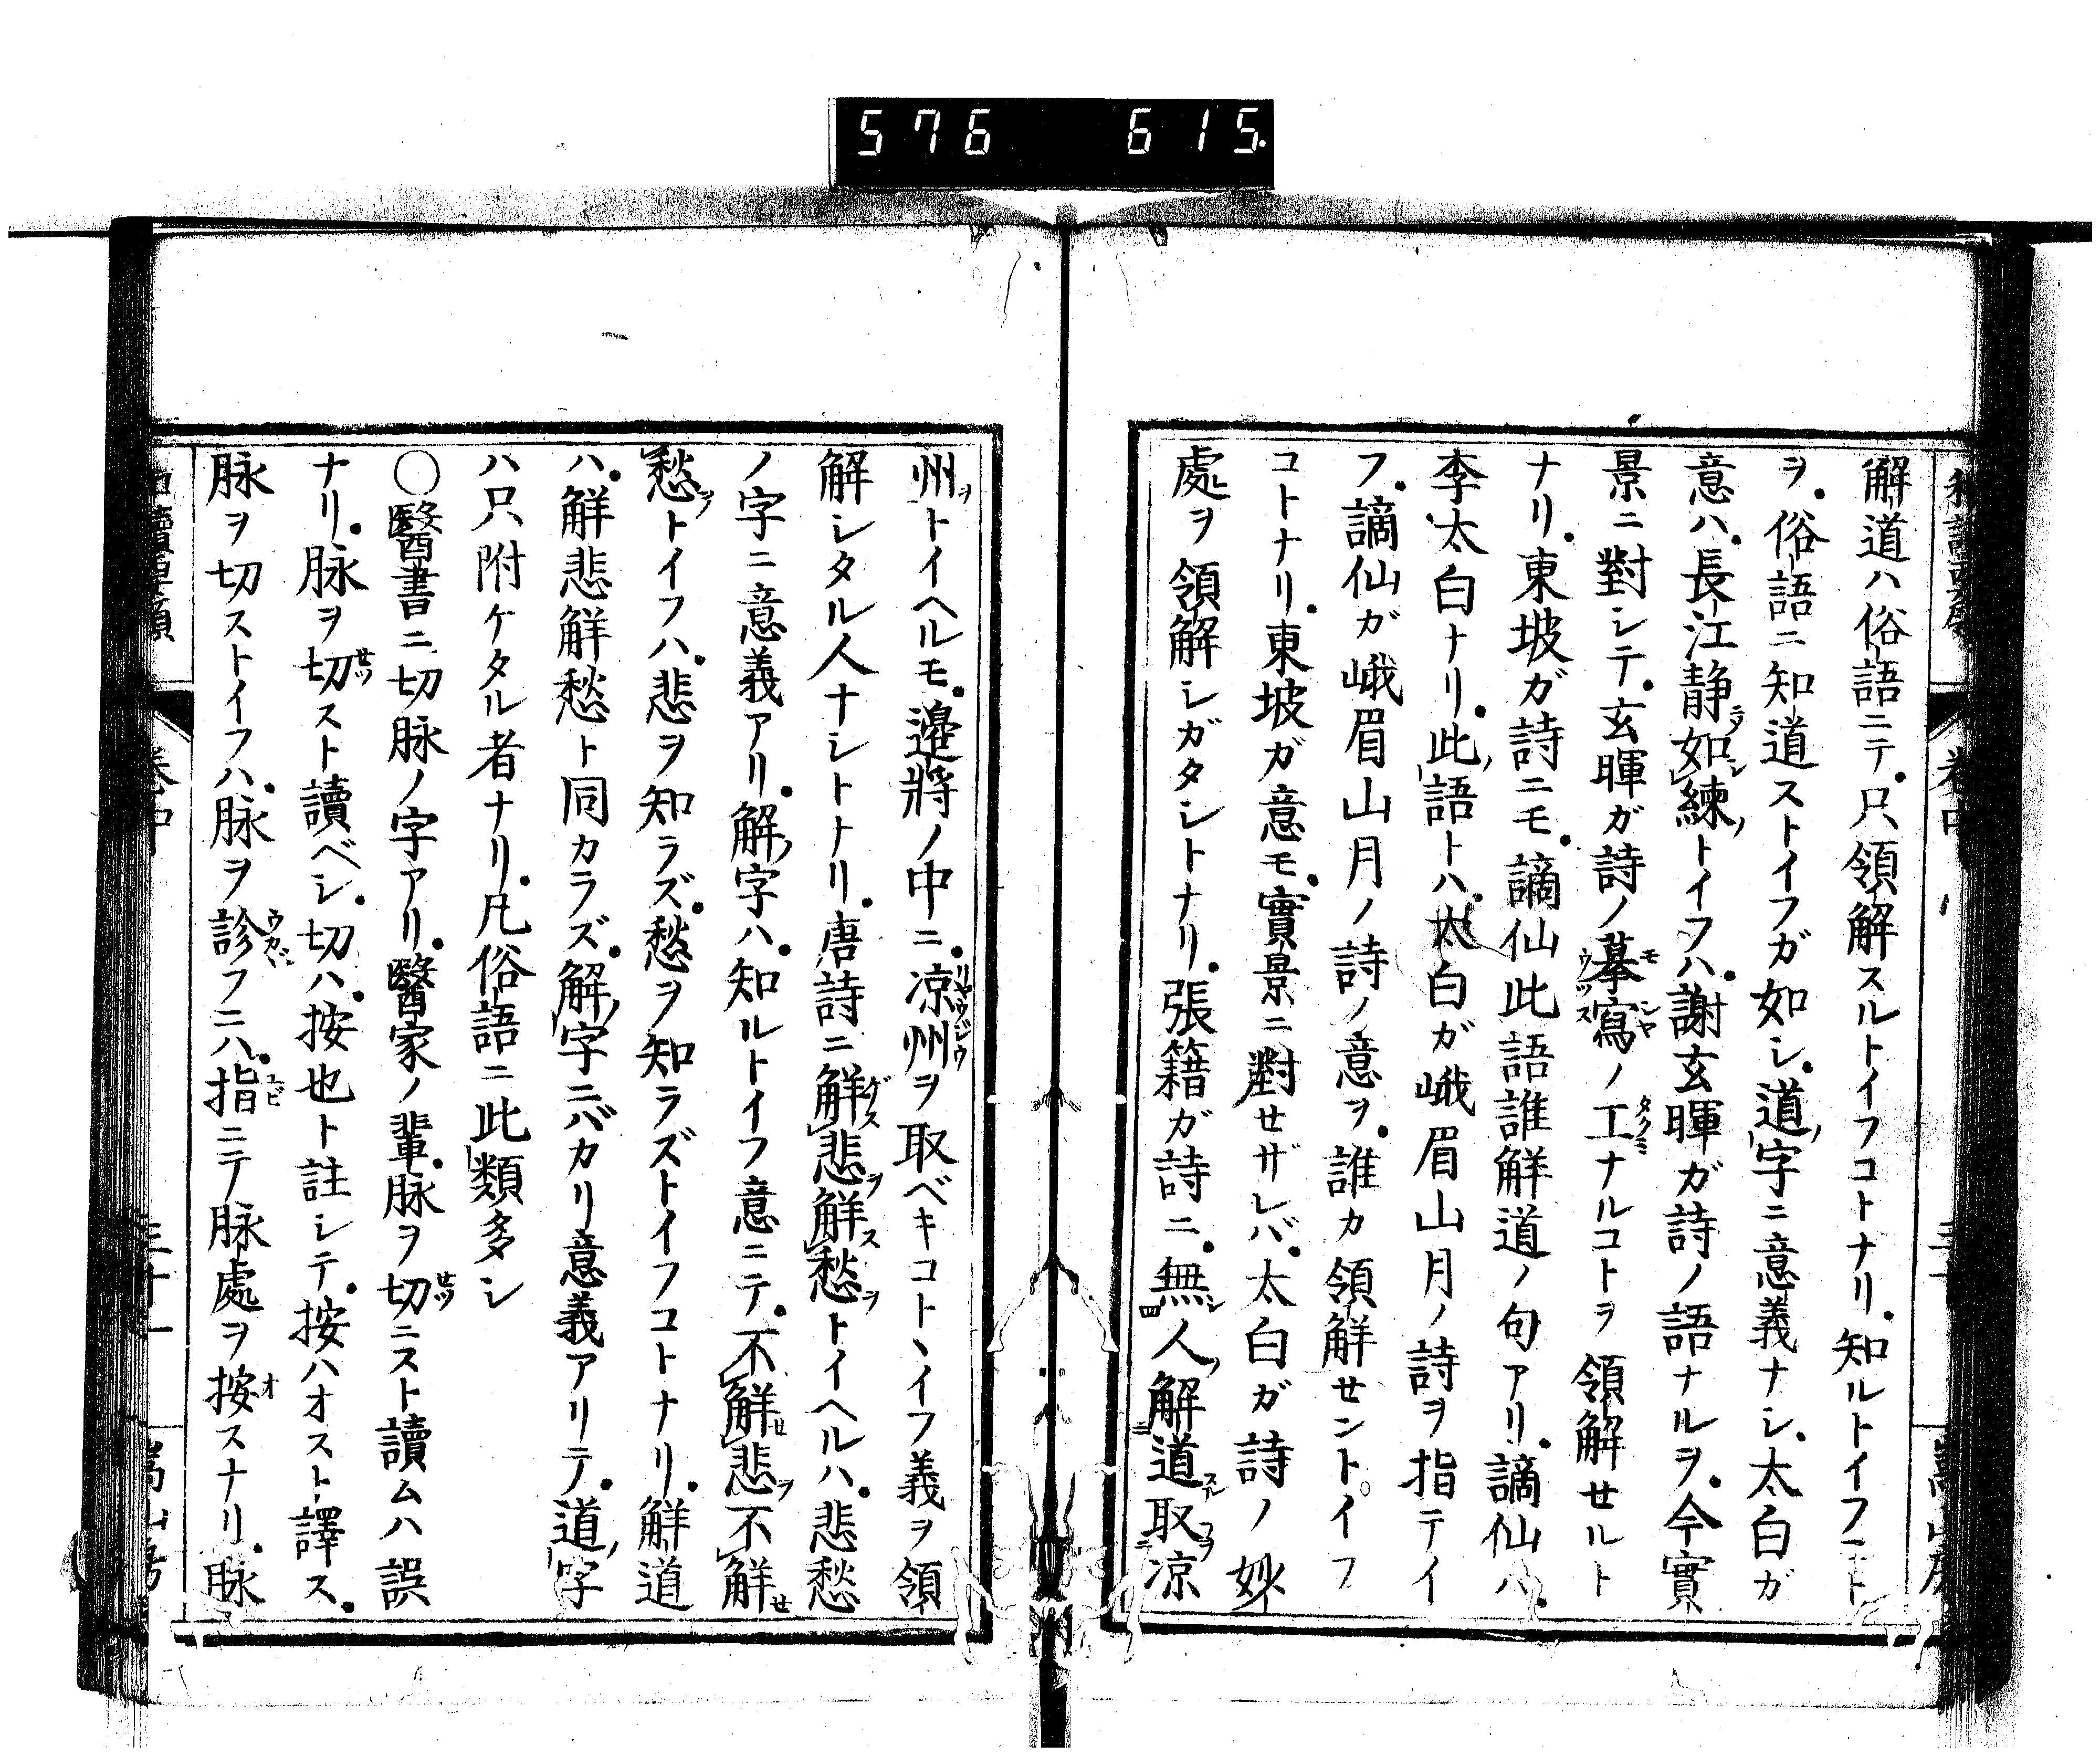 576 615
解道ハ俗語ニテ。只領解スルトイフコトナリ。知ルトイフコト
ヲ。俗語ニ知道ストイフガ如シ。道ノ字ニ意義ナシ。太白ガ
意ハ。長江靜如練トイフハ。謝玄暉ガ詩ノ語ナルヲ。今實
景ニ對シテ。玄暉ガ詩ノ摹寫ノ工ナルコトヲ領解セルト
ナリ。東坡ガ詩ニモ。謫仙此語誰解道ノ句アリ。謫仙ハ。
李太白ナリ。此ノ語トハ。太白ガ峨眉山月ノ詩ヲ指テイ
フ。謫仙ガ峨眉山月ノ詩ノ意ヲ。誰カ領解セント。イフ
コトナリ。東坡ガ意モ。實景ニ對セザレバ。太白ガ詩ノ妙
處ヲ領解シガタシトナリ。張籍ガ詩ニ。無人解道取凉
州トイヘルモ。邊將ノ中ニ。凉州ヲ取ベキコトヽイフ義ヲ領
解シタル人ナシトナリ。唐詩ニ解悲解愁トイヘルハ。悲愁
ノ字ニ意義アリ。解ノ字ハ。知ルトイフ意ニテ。不解悲不解
愁トイフハ。悲ヲ知ラズ。愁ヲ知ラズトイフコトナリ。解道
ハ。解悲解愁ト同カラズ。解ノ字ニバカリ意義アリテ。道ノ字
ハ只附ケタル者ナリ。凡俗語ニ此類多シ
〇醫書ニ切脉ノ字アリ。醫家ノ輩。脉ヲ切ニスト讀ムハ誤
ナリ。脉ヲ切スト讀ベシ。切ハ。按也ト註シテ。按ハオスト譯ス。
脉ヲ切ストイフハ。脉ヲ診フニハ。指ニテ脉處ヲ按スナリ。脉
卷中
三十一